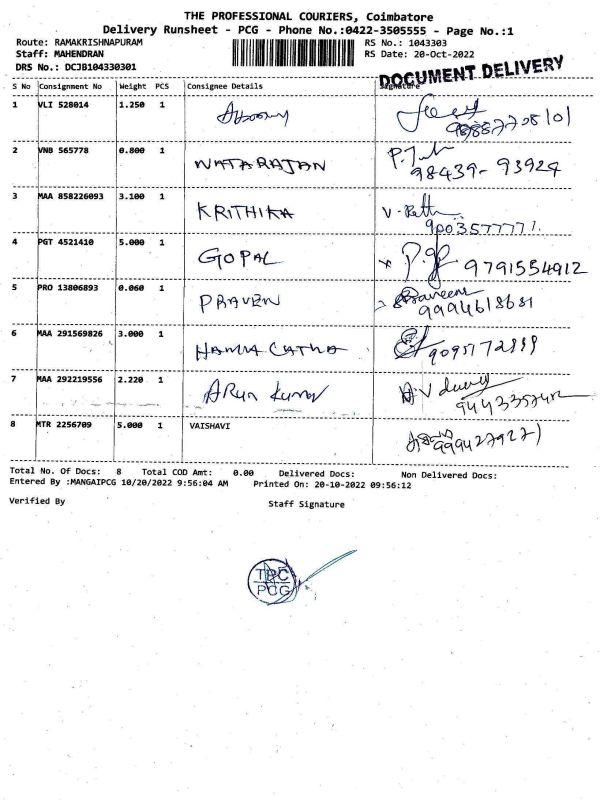 THE PROFESSIONAL COURIERS, Coimbatore
Delivery Runsheet - PCG - Phone No.:0422-3505555 - Page No.:1
Route: RAMAKRISHNAPURAM RS No.: 1043303
Staff: MAHENDRAN RS Date: 20-Oct-2022
DRS No.: DCJB104330301
DOCUMENT DELIVERY
S No Consignment No Weight PCS Consignee Details Signature
1 VLI 528014 1.250 1
2 VNB 565778 0.800 1 NATARAJAN 98439-93924
3 MAA 858226093 3.100 1 KRITHIKA
4 PGT 4521410 5.000 1 GOPAL 9791554912
5 PRO 13806893 0.060 1 PRAVEN Praveen
9994618681
6 MAA 291569826 3.000 1
7 MAA 292219556 2.220 1 ARun Kumar
8 MTR 2256709 5.000 1 VAISHAVI
Total No. Of Docs: 8 Total COD Amt: 0.00 Delivered Docs: Non Delivered Docs:
Entered By :MANGAIPCG 10/20/2022 9:56:04 AM Printed On: 20-10-2022 09:56:12
Verified By Staff Signature
TPC
PCG